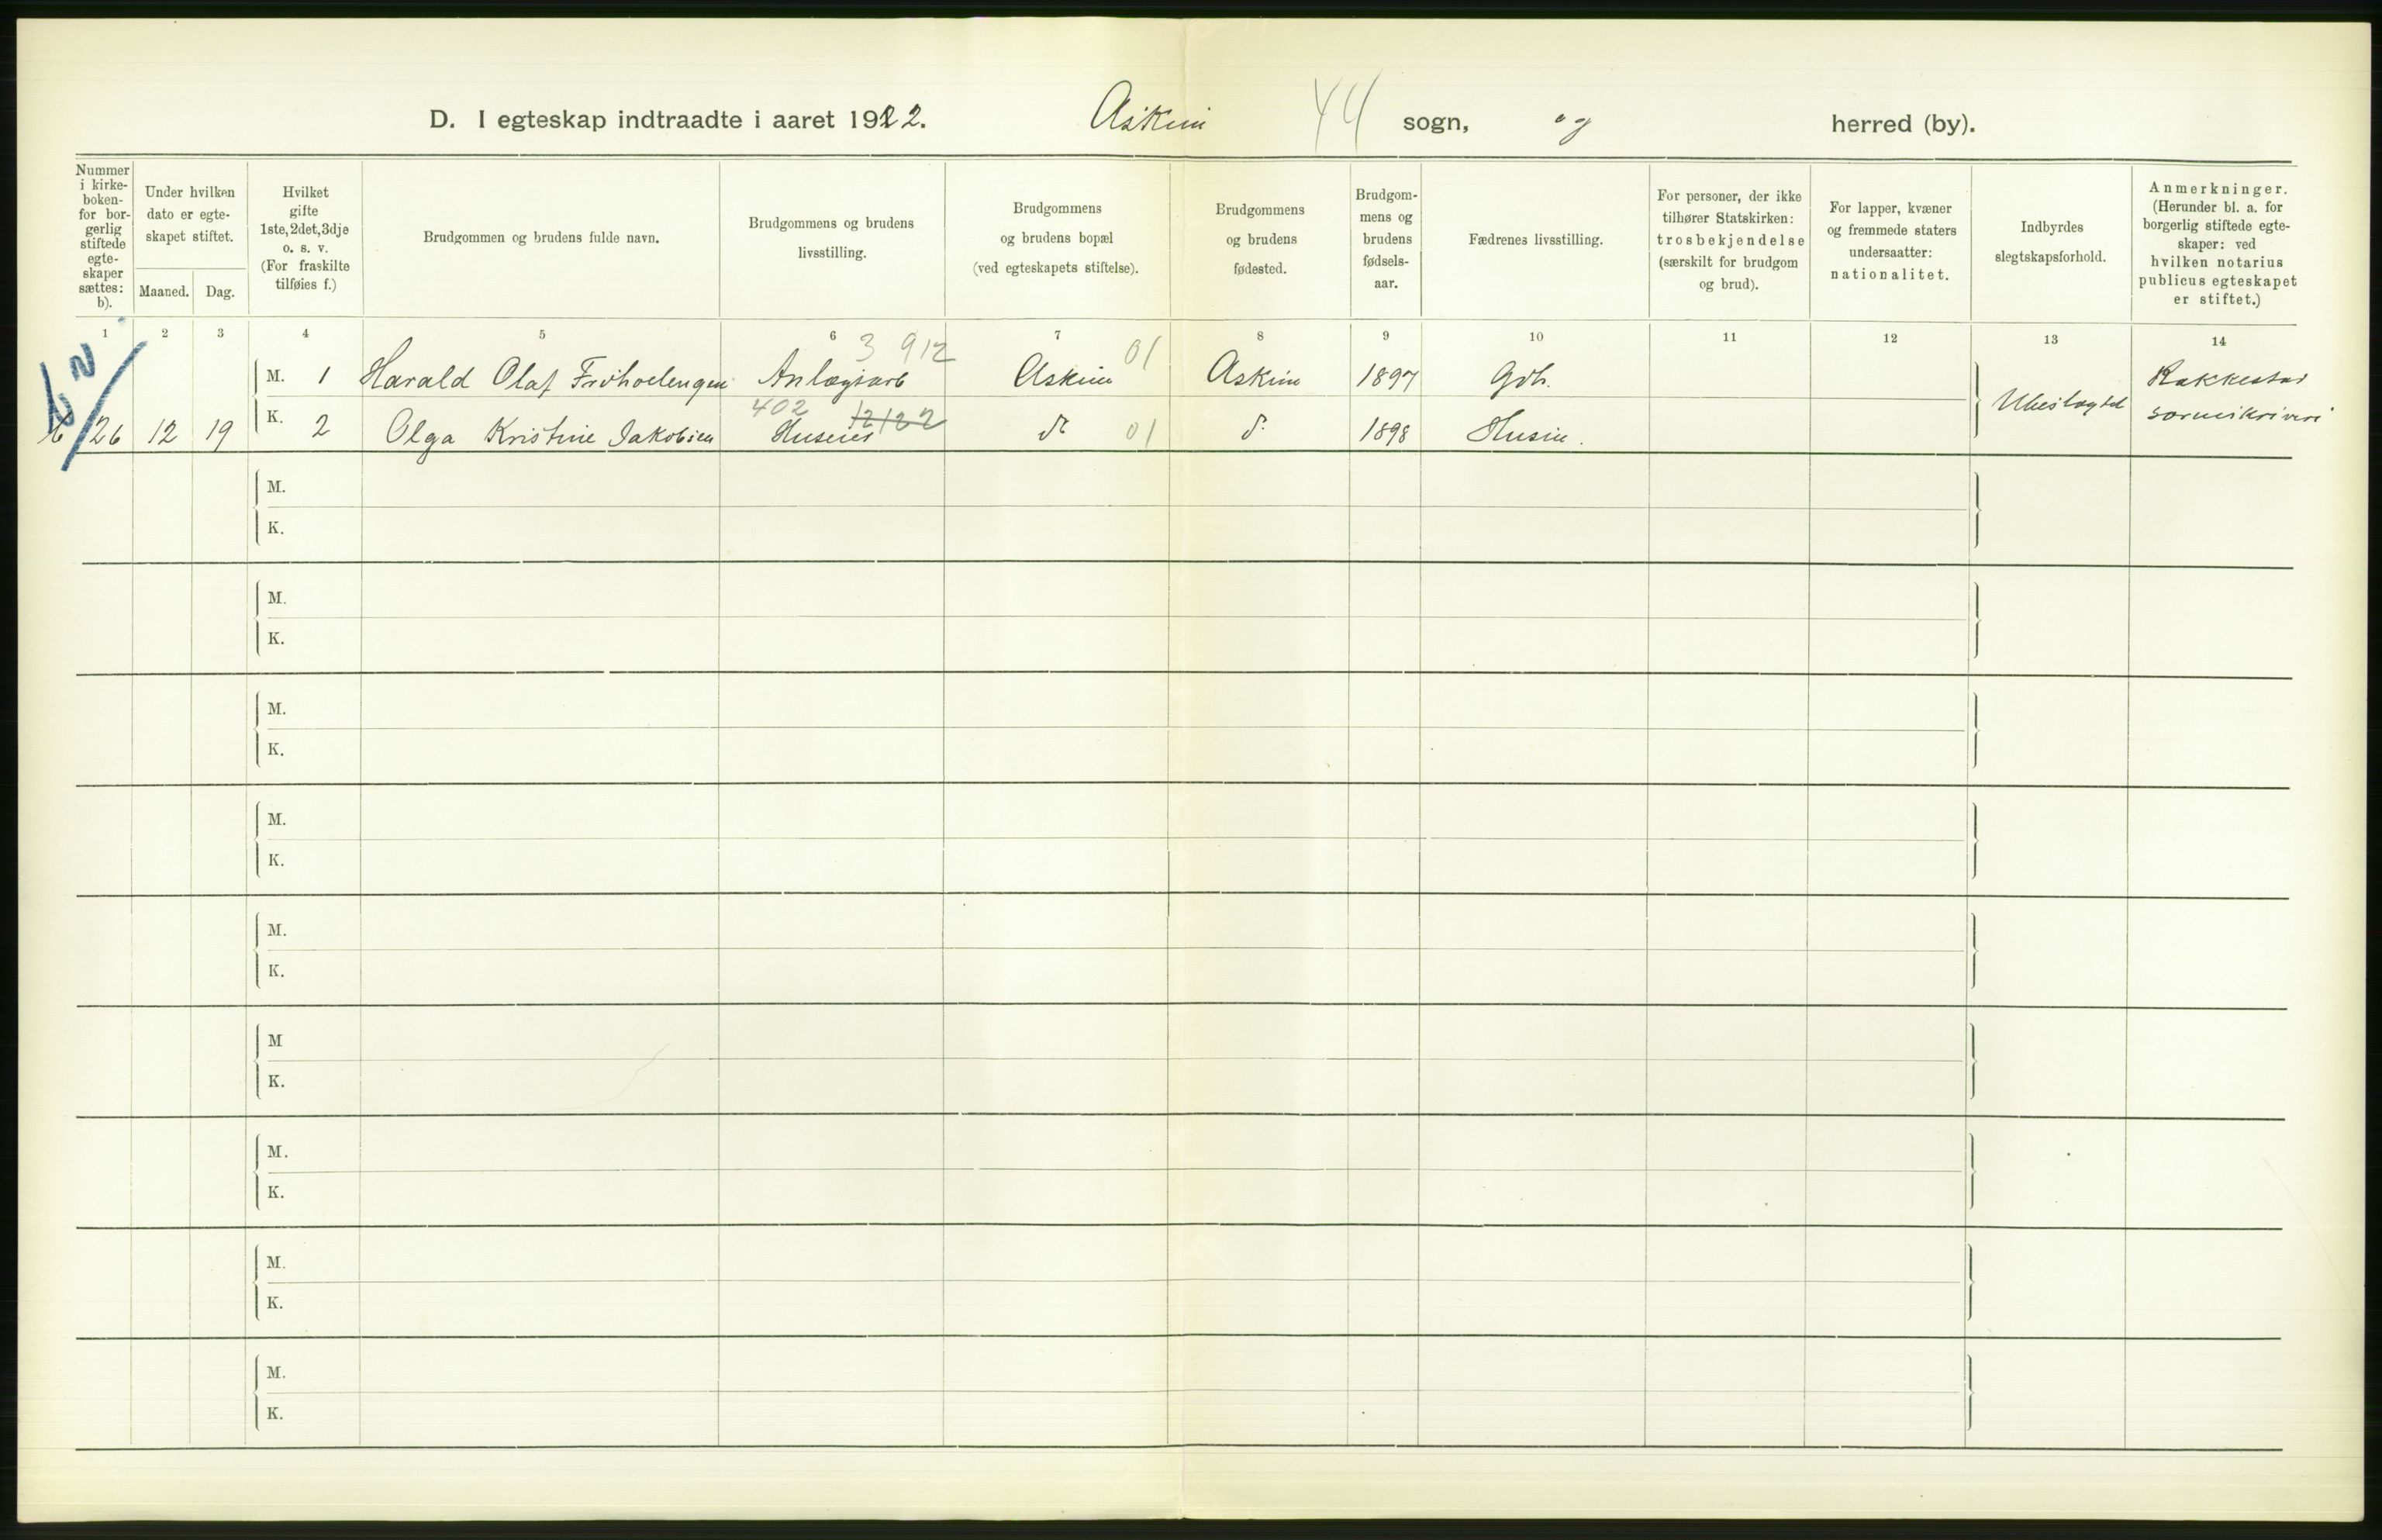 D. I egteskap indtraadte i aaret 1922. Askim 44 sogn, og herred (by).
Nummer i kirkeboken- for borgerlig stiftede egteskaper sættes: b).
Under hvilken dato er egteskapet stiftet.
Maaned. Dag.
Hvilket gifte 1ste, 2det, 3dje o. s. v. (For fraskilte tilføies f.)
Brudgommen og brudens fulde navn.
Brudgommens og brudens livsstilling.
Brudgommens og brudens bopæl (ved egteskapets stiftelse).
Brudgommens og brudens fødested.
Brudgommens og brudens fødselsaar.
Fædrenes livsstilling.
For personer, der ikke tilhører Statskirken: trosbekjendelse (særskilt for brudgom og brud).
For lapper, kvæner og fremmede staters undersaatter: nationalitet.
Indbyrdes slegtskapsforhold.
Anmerkninger. (Herunder bl. a. for borgerlig stiftede egteskaper: ved hvilken notarius publicus egteskapet er stiftet.)
1 2 3 4 5 6 7 8 9 10 11 12 13 14
3 912 01
M. 1 Harald Olaf Fröhoelengen Anlægsarb Askim Askim 1897 Gdb. Rakkestad
402 12122
b/26 12 19 K. 2 Olga Kristine Jakobsen Huseier d. 01 d. 1898 Husm. Ubeslægtet sorenskriveri
M.
K.
M.
K.
M.
K.
M.
K.
M.
K.
M
K.
M.
K.
M.
K.
M.
K.